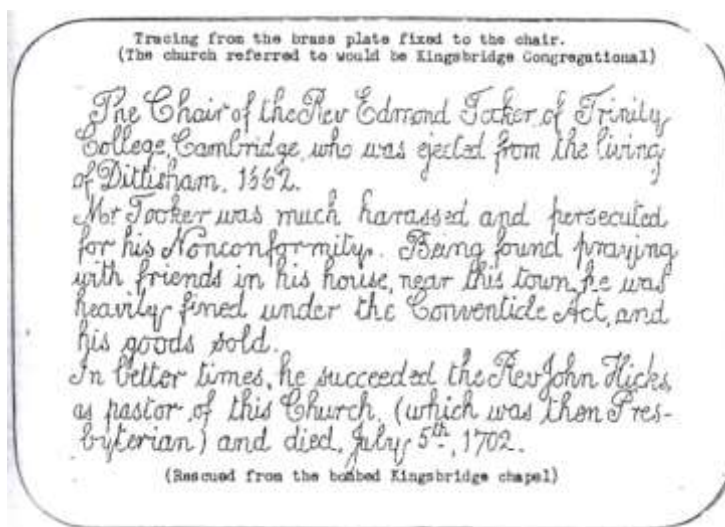 Tracing from the brass plate fixed to the chair.
(The church referred to would be Kingsbridge Congregational)
The Chair of the Rev Edmond Tooker, of Trinity
College, Cambridge, who was ejected from the living
of Dittisham, 1662.
Mr Tooker was much harassed and persecuted
for his Nonconformity. Being found praying
with friends in his house, near this town, he was
heavily fined under the Conventicle Act, and
his goods sold.
In better times, he succeeded the Rev John Hicks,
as pastor, of this Church, (which was then Pres-
byterian) and died, July 5th, 1702.
(Rescued from the bombed Kingsbridge chapel)